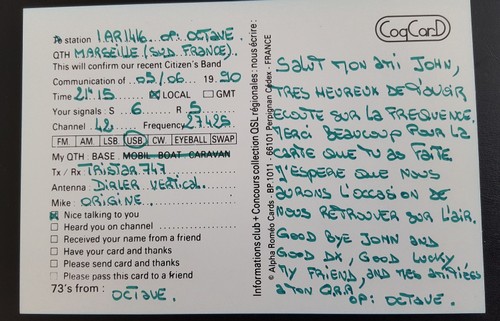 To station 1AR146. OP: OCTAVE.
QTH MARSEILLE (SUD. FRANCE).
This will confirm our recent Citizen's Band
Communication of 05/06 19 90
Time 21H15 LOCAL GMT
Your signals S 6 R 5
Channel 42 Frequency 27.425
FM AM LSB USB CW EYEBALL SWAP
My QTH: BASE MOBIL BOAT CARAVAN
Tx / Rx: TRISTAR 747
Antenna: DIRLER VERTICAL.
Mike: ORIGINE
Nice talking to you
Heard you on channel
Received your name from a friend
Have your card and thanks
Please send card and thanks
Please pass this card to a friend
73's from: OCTAVE.
Informations club + Concours collection QSL régionales : nous écrire :
© Alpha Roméo Cards - BP.1011 - 66101 Perpignan Cédex - FRANCE
CoqCarD
SALUT MON AMI JOHN,
TRES HEUREUX DE T'AVOIR
ECOUTE SUR LA FREQUENCE.
MERCI BEAUCOUP POUR LA
CARTE QUE TU AS FAITE
J'ESPERE QUE NOUS
AURONS L'OCCASION DE
NOUS RETROUVER SUR L'AIR.
GOOD BYE JOHN AND
GOOD DX, GOOD LUCKY
MY FRIEND, AND MES AMITIÉS
A TON Q.R.A
OP: OCTAVE.